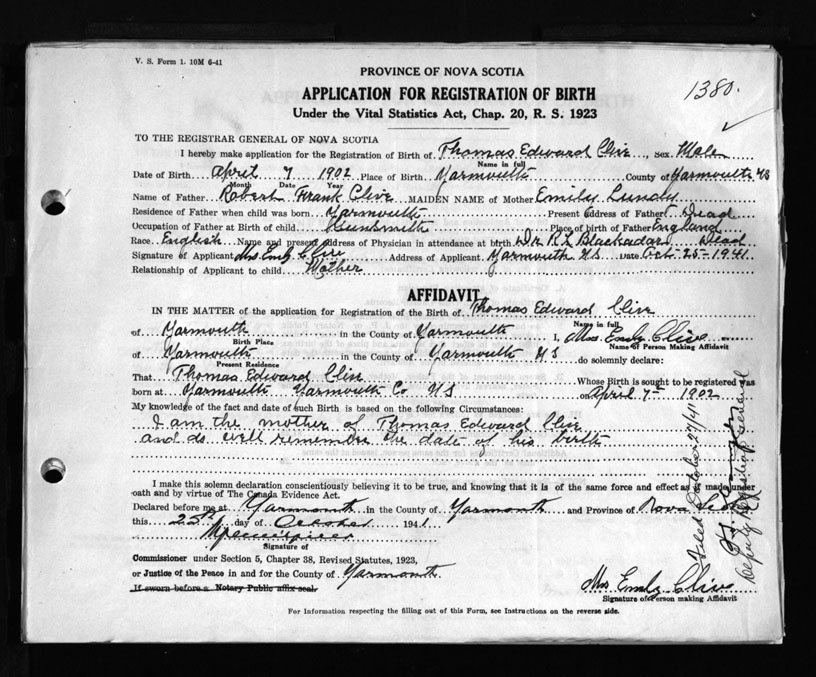 V. S. Form 1. 10M 6-41
PROVINCE OF NOVA SCOTIA
APPLICATION FOR REGISTRATION OF BIRTH
1380.
Under the Vital Statistics Act, Chap. 20, R. S. 1923
TO THE REGISTRAR GENERAL OF NOVA SCOTIA
I hereby make application for the Registration of Birth of Thomas Edward Clive, Sex Male
Name in full
Date of Birth April 7 1902 Place of Birth Yarmouth County of Yarmouth NS
Month Date Year
Name of Father Robert Frank Clive MAIDEN NAME of Mother Emily Lundy
Residence of Father when child was born Yarmouth Present address of Father Dead
Occupation of Father at Birth of child Gunsmith Place of birth of Father England
Race English Name and present address of Physician in attendance at birth Dr R L Blackadar Dead
Signature of Applicant Mrs. Emily Clive Address of Applicant Yarmouth N.S Date Oct. 25-1941.
Relationship of Applicant to child Mother
AFFIDAVIT
IN THE MATTER of the application for Registration of the Birth of Thomas Edward Clive
Name in full
of Yarmouth in the County of Yarmouth I, Mrs. Emily Clive
Birth Place Name of Person Making Affidavit
of Yarmouth in the County of Yarmouth N S do solemnly declare:
Present Residence
That Thomas Edward Clive Whose Birth is sought to be registered was
born at Yarmouth Yarmouth Co N S on April 7th 1902
My knowledge of the fact and date of such Birth is based on the following Circumstances:
I am the mother of Thomas Edward Clive
and do well remember the date of his birth
I make this solemn declaration conscientiously believing it to be true, and knowing that it is of the same force and effect as if made under
oath and by virtue of The Canada Evidence Act.
Declared before me at Yarmouth in the County of Yarmouth and Province of Nova Scotia
this 25th day of October 1941
Signature of
Commissioner under Section 5, Chapter 38, Revised Statutes, 1923,
or Justice of the Peace in and for the County of Yarmouth.
If sworn before a Notary Public affix seal.
Mrs Emily Clive
Signature of Person making Affidavit
For Information respecting the filling out of this Form, see Instructions on the reverse side.
Filed October 27/41
Deputy Registrar General